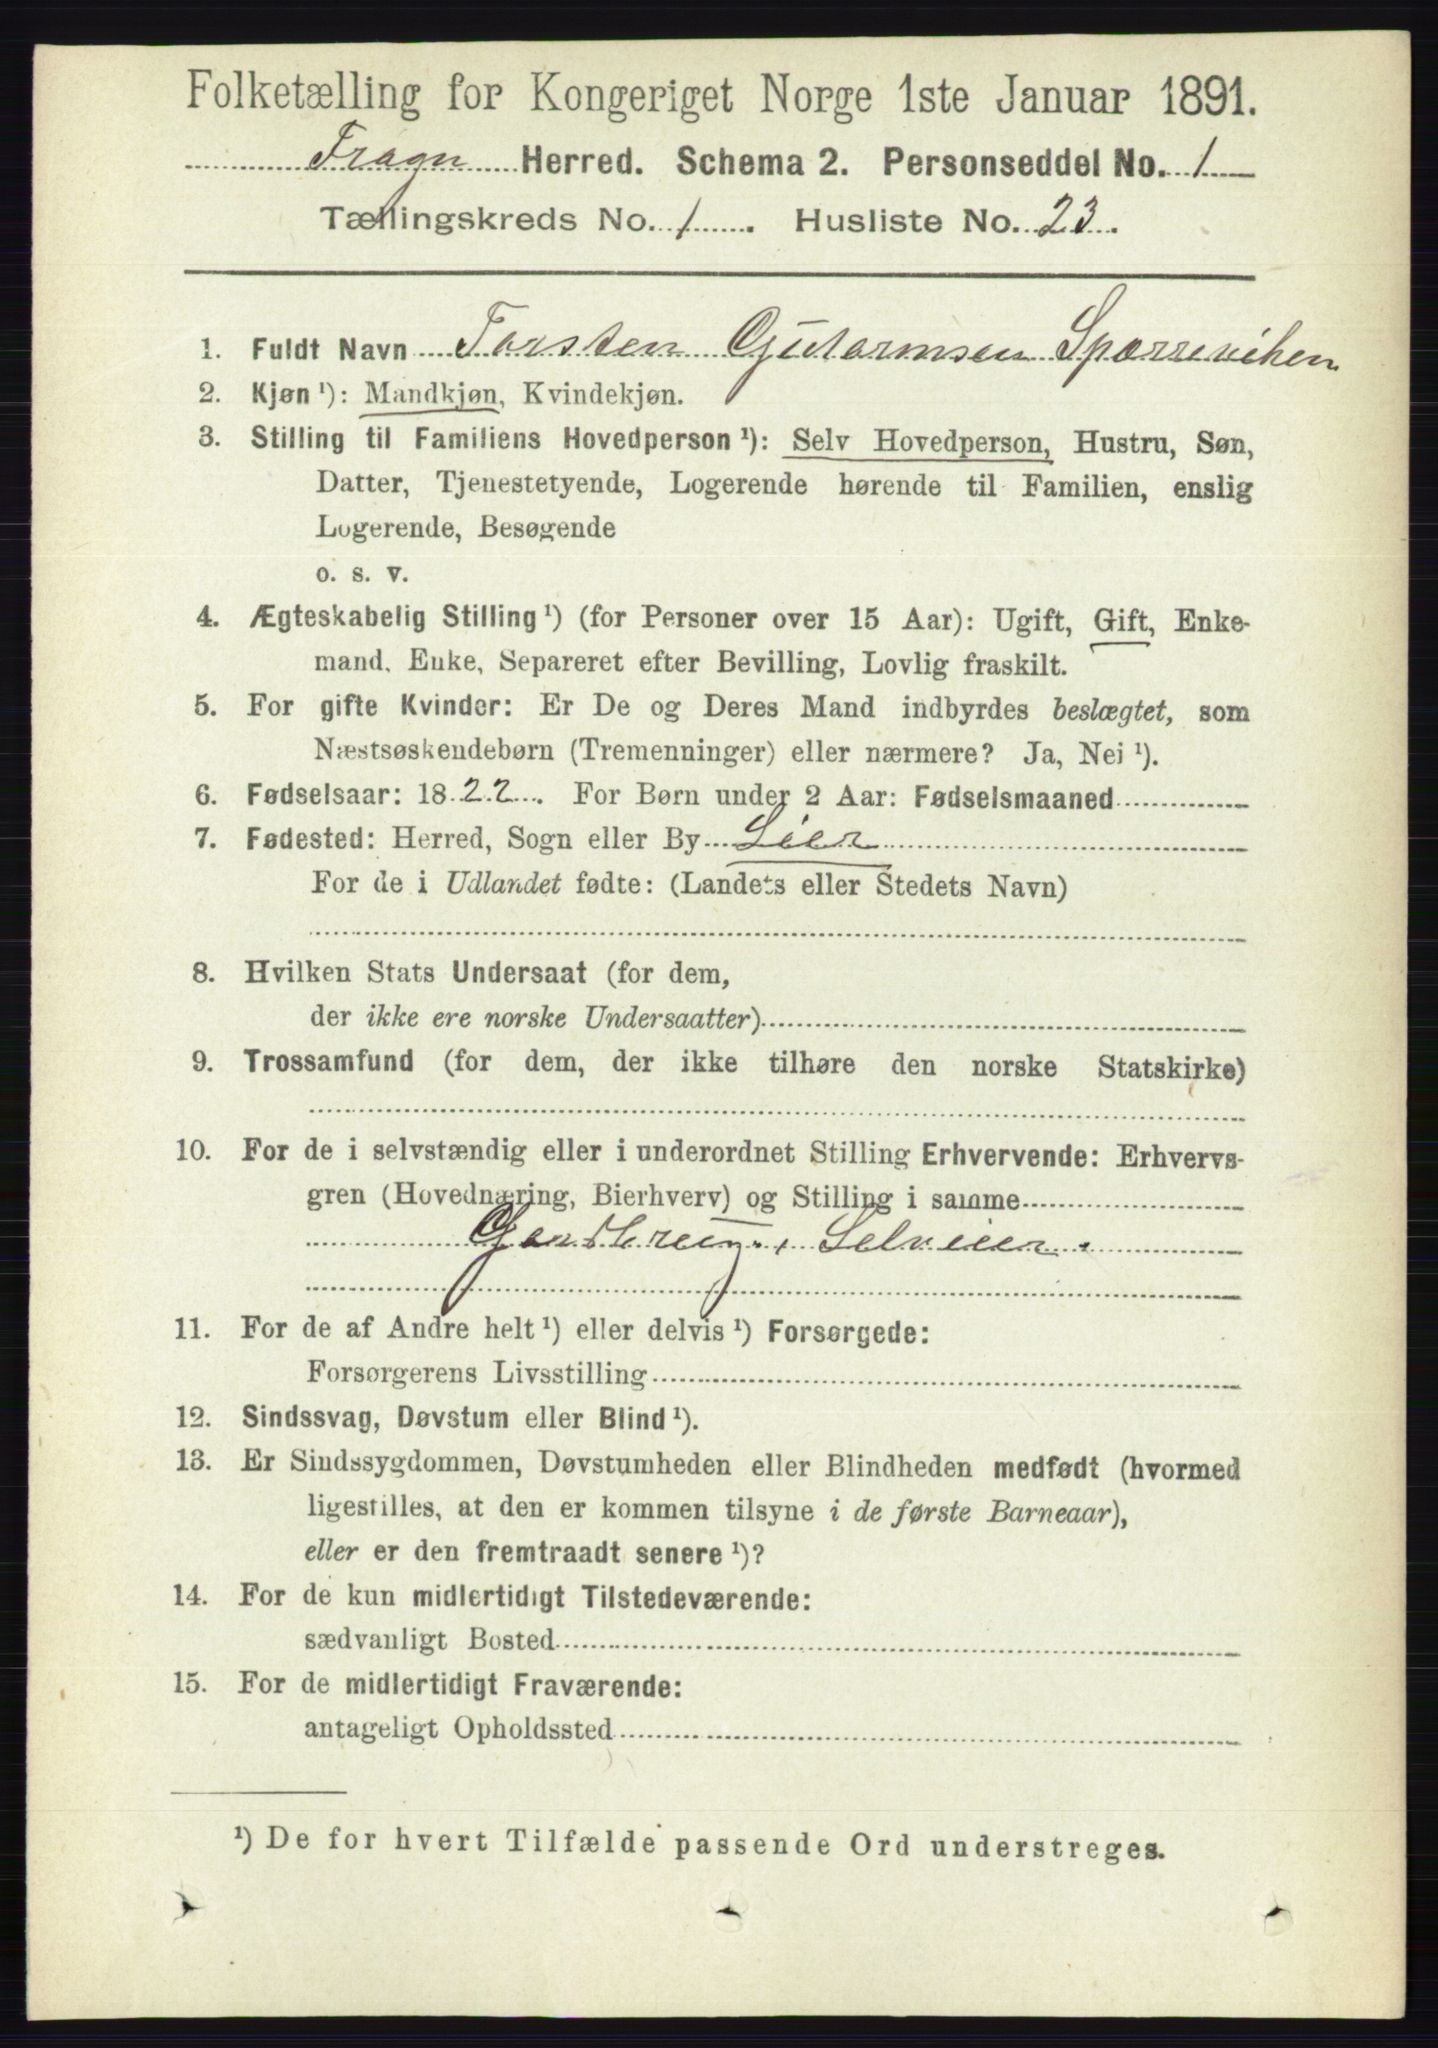 Folketælling for Kongeriget Norge 1ste Januar 1891.
Fragn Herred. Schema 2. Personseddel No. 1
Tællingskreds No. 1. Husliste No. 23.
1. Fuldt Navn Torsten Gutormsen Sparreviken
2. Kjøn ¹): Mandkjøn, Kvindekjøn.
3. Stilling til Familiens Hovedperson ¹): Selv Hovedperson, Hustru, Søn,
Datter, Tjenestetyende, Logerende hørende til Familien, enslig
Logerende, Besøgende
o. s. v.
4. Ægteskabelig Stilling ¹) (for Personer over 15 Aar): Ugift, Gift, Enke-
mand, Enke, Separeret efter Bevilling, Lovlig fraskilt.
5. For gifte Kvinder: Er De og Deres Mand indbyrdes beslægtet, som
Næstsøskendebørn (Tremenninger) eller nærmere? Ja, Nei ¹).
6. Fødselsaar: 1822. For Børn under 2 Aar: Fødselsmaaned
7. Fødested: Herred, Sogn eller By Lier
For de i Udlandet fødte: (Landets eller Stedets Navn)
8. Hvilken Stats Undersaat (for dem,
der ikke ere norske Undersaatter)
9. Trossamfund (for dem, der ikke tilhøre den norske Statskirke)
10. For de i selvstændig eller i underordnet Stilling Erhvervende: Erhvervs-
gren (Hovednæring, Bierhverv) og Stilling i samme
Gardbrug, Selveier.
11. For de af Andre helt ¹) eller delvis ¹) Forsørgede:
Forsørgerens Livsstilling
12. Sindssvag, Døvstum eller Blind ¹).
13. Er Sindssygdommen, Døvstumheden eller Blindheden medfødt (hvormed
ligestilles, at den er kommen tilsyne i de første Barneaar),
eller er den fremtraadt senere ¹)?
14. For de kun midlertidigt Tilstedeværende:
sædvanligt Bosted
15. For de midlertidigt Fraværende:
antageligt Opholdssted
¹) De for hvert Tilfælde passende Ord understreges.